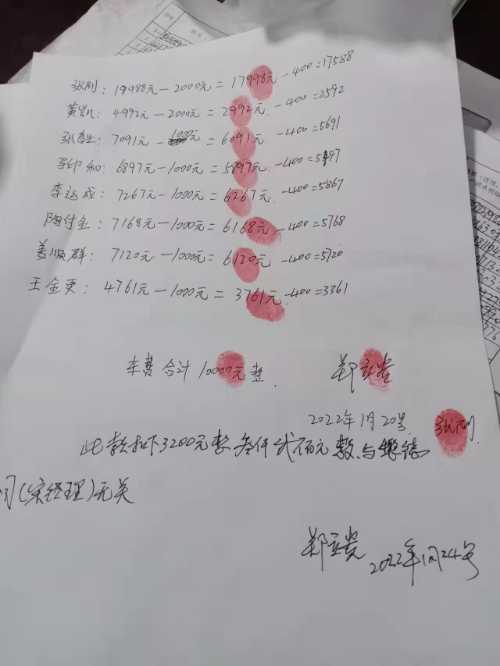 张刚: 19988元-2000元=17988元-400=17588
4992元-2000元=2992元-400=2592
张春生: 7091元-1000元=6091元-400=5691
6897元-1000元=5897元-400=5497
李达成: 7267元-1000元=6267元-400=5867
陶付全: 7168元-1000元=6168元-400=5768
姜顺群: 7120元-1000元=6120元-400=5720
王金英: 4761元-1000元=3761元-400=3361
车费合计10000元整. 郑立贵
2022年1月20号 张刚
此款扣下3200元整叁仟贰佰元整,与
司(宋经理)无关
郑立贵 2022年1月24号